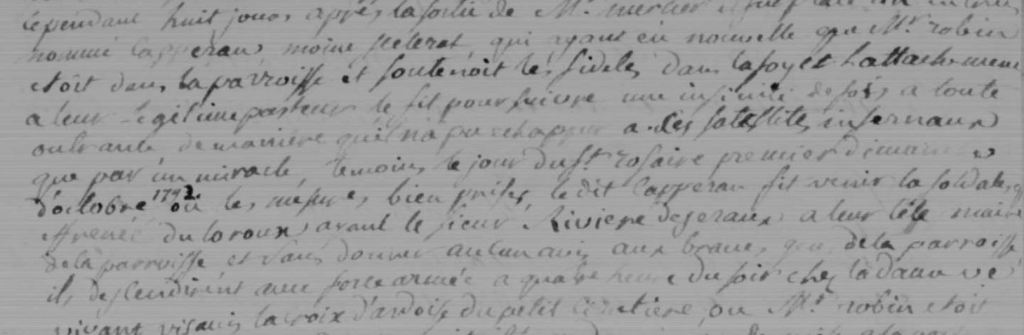 Cependant huit jours apprés la sortie de Mr. mercier il fut un intrus
nommé Lapperau moine scelerat, qui ayant eü nouvelle que Mr. robin
etoit dans la parroisse et soutenoit les fideles dans la foy et l'attachement
a leur legitime pasteur le fit poursuivre une infinité de fois a toute
outrance de maniere qu'il n'a pu echapper a des satellites infernaux
que par un miracle, temoins le jour du St. rosaire premier dimanche
d'octobre 1792 ou les mesures bien prises, le dit Lapperau fit venir la soldatesq
effrenée du loroux ayant le sieur Riviere a leur tête maire
de la parroisse et sans donner aucun avis aux braves gens de la parroisse
ils descendirent avec force armée a quatre heure du soir chez la dame ve
vivant vis avis la croix d'ardoise du petit cimetiere, ou Mr. robin etoit